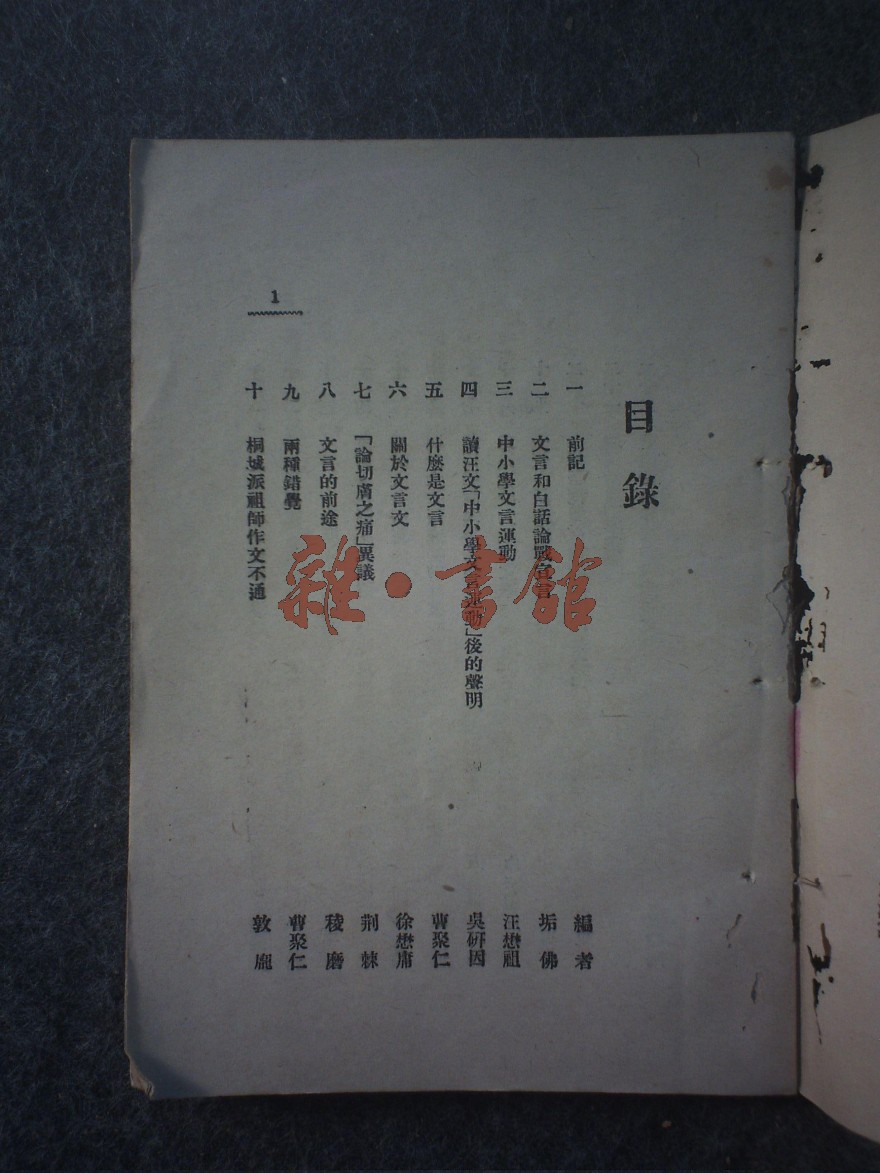 目錄
一 前記 編者
二 文言和白話論戰宣言 垢佛
三 中小學文言運動 汪懋祖
四 讀汪文「中小學文言運動」後的聲明 吳研因
五 什麼是文言 曹聚仁
六 關於文言文 徐懋庸
七 「論切膚之痛」異議 荆棘
八 文言的前途 稜磨
九 兩種錯覺 曹聚仁
十 桐城派祖師作文不通 敦龐
1
雜·書館